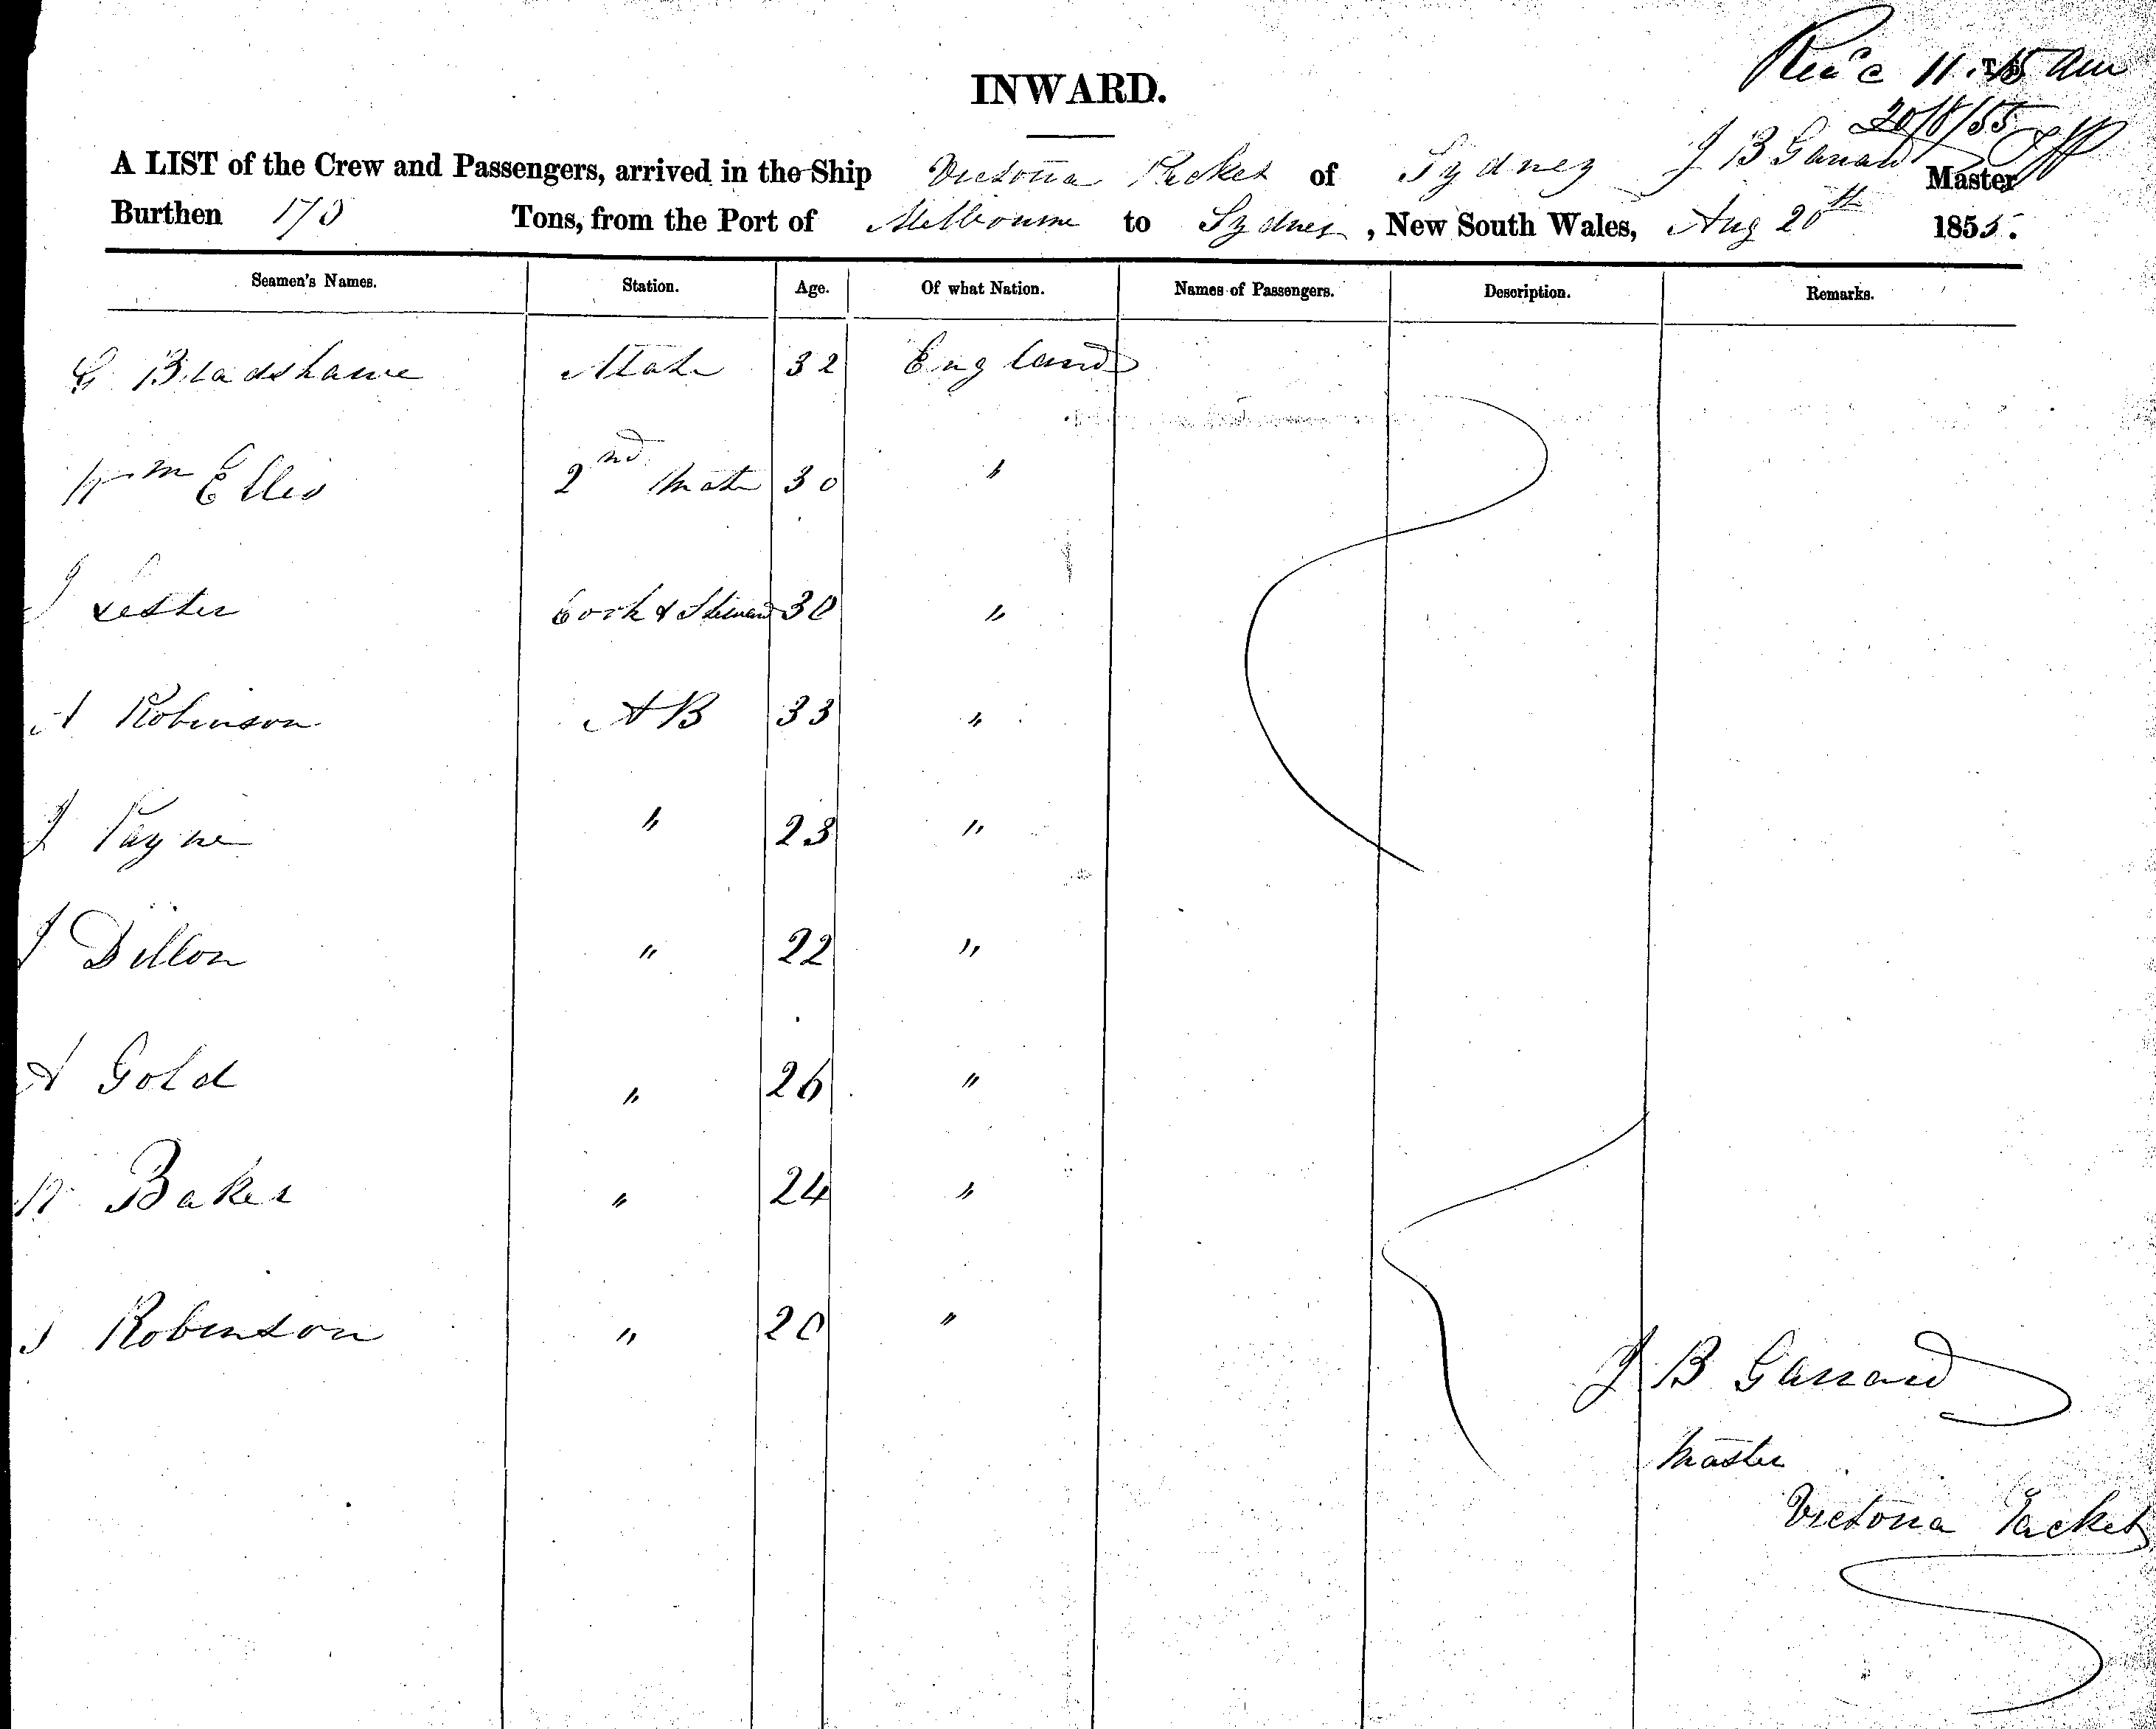 Rec'd 11.15 am
20/8/55
INWARD.
A LIST of the Crew and Passengers, arrived in the Ship Victoria Packet of Sydney J B Garrard Master
Burthen 170 Tons, from the Port of Melbourne to Sydney, New South Wales, Aug 20th 1855.
Seamen's Names. Station. Age. Of what Nation. Names of Passengers. Description. Remarks.
G Bradshawe Mate 32 England
Wm Ellis 2nd Mate 30 "
J Lester Cook & Steward 30 "
A Robinson A B 33 "
J Payne " 23 "
J Dillon " 22 "
A Gold " 26 "
W Baker " 24 "
J Robinson " 20 "
J B Garrard
Master
Victoria Packet